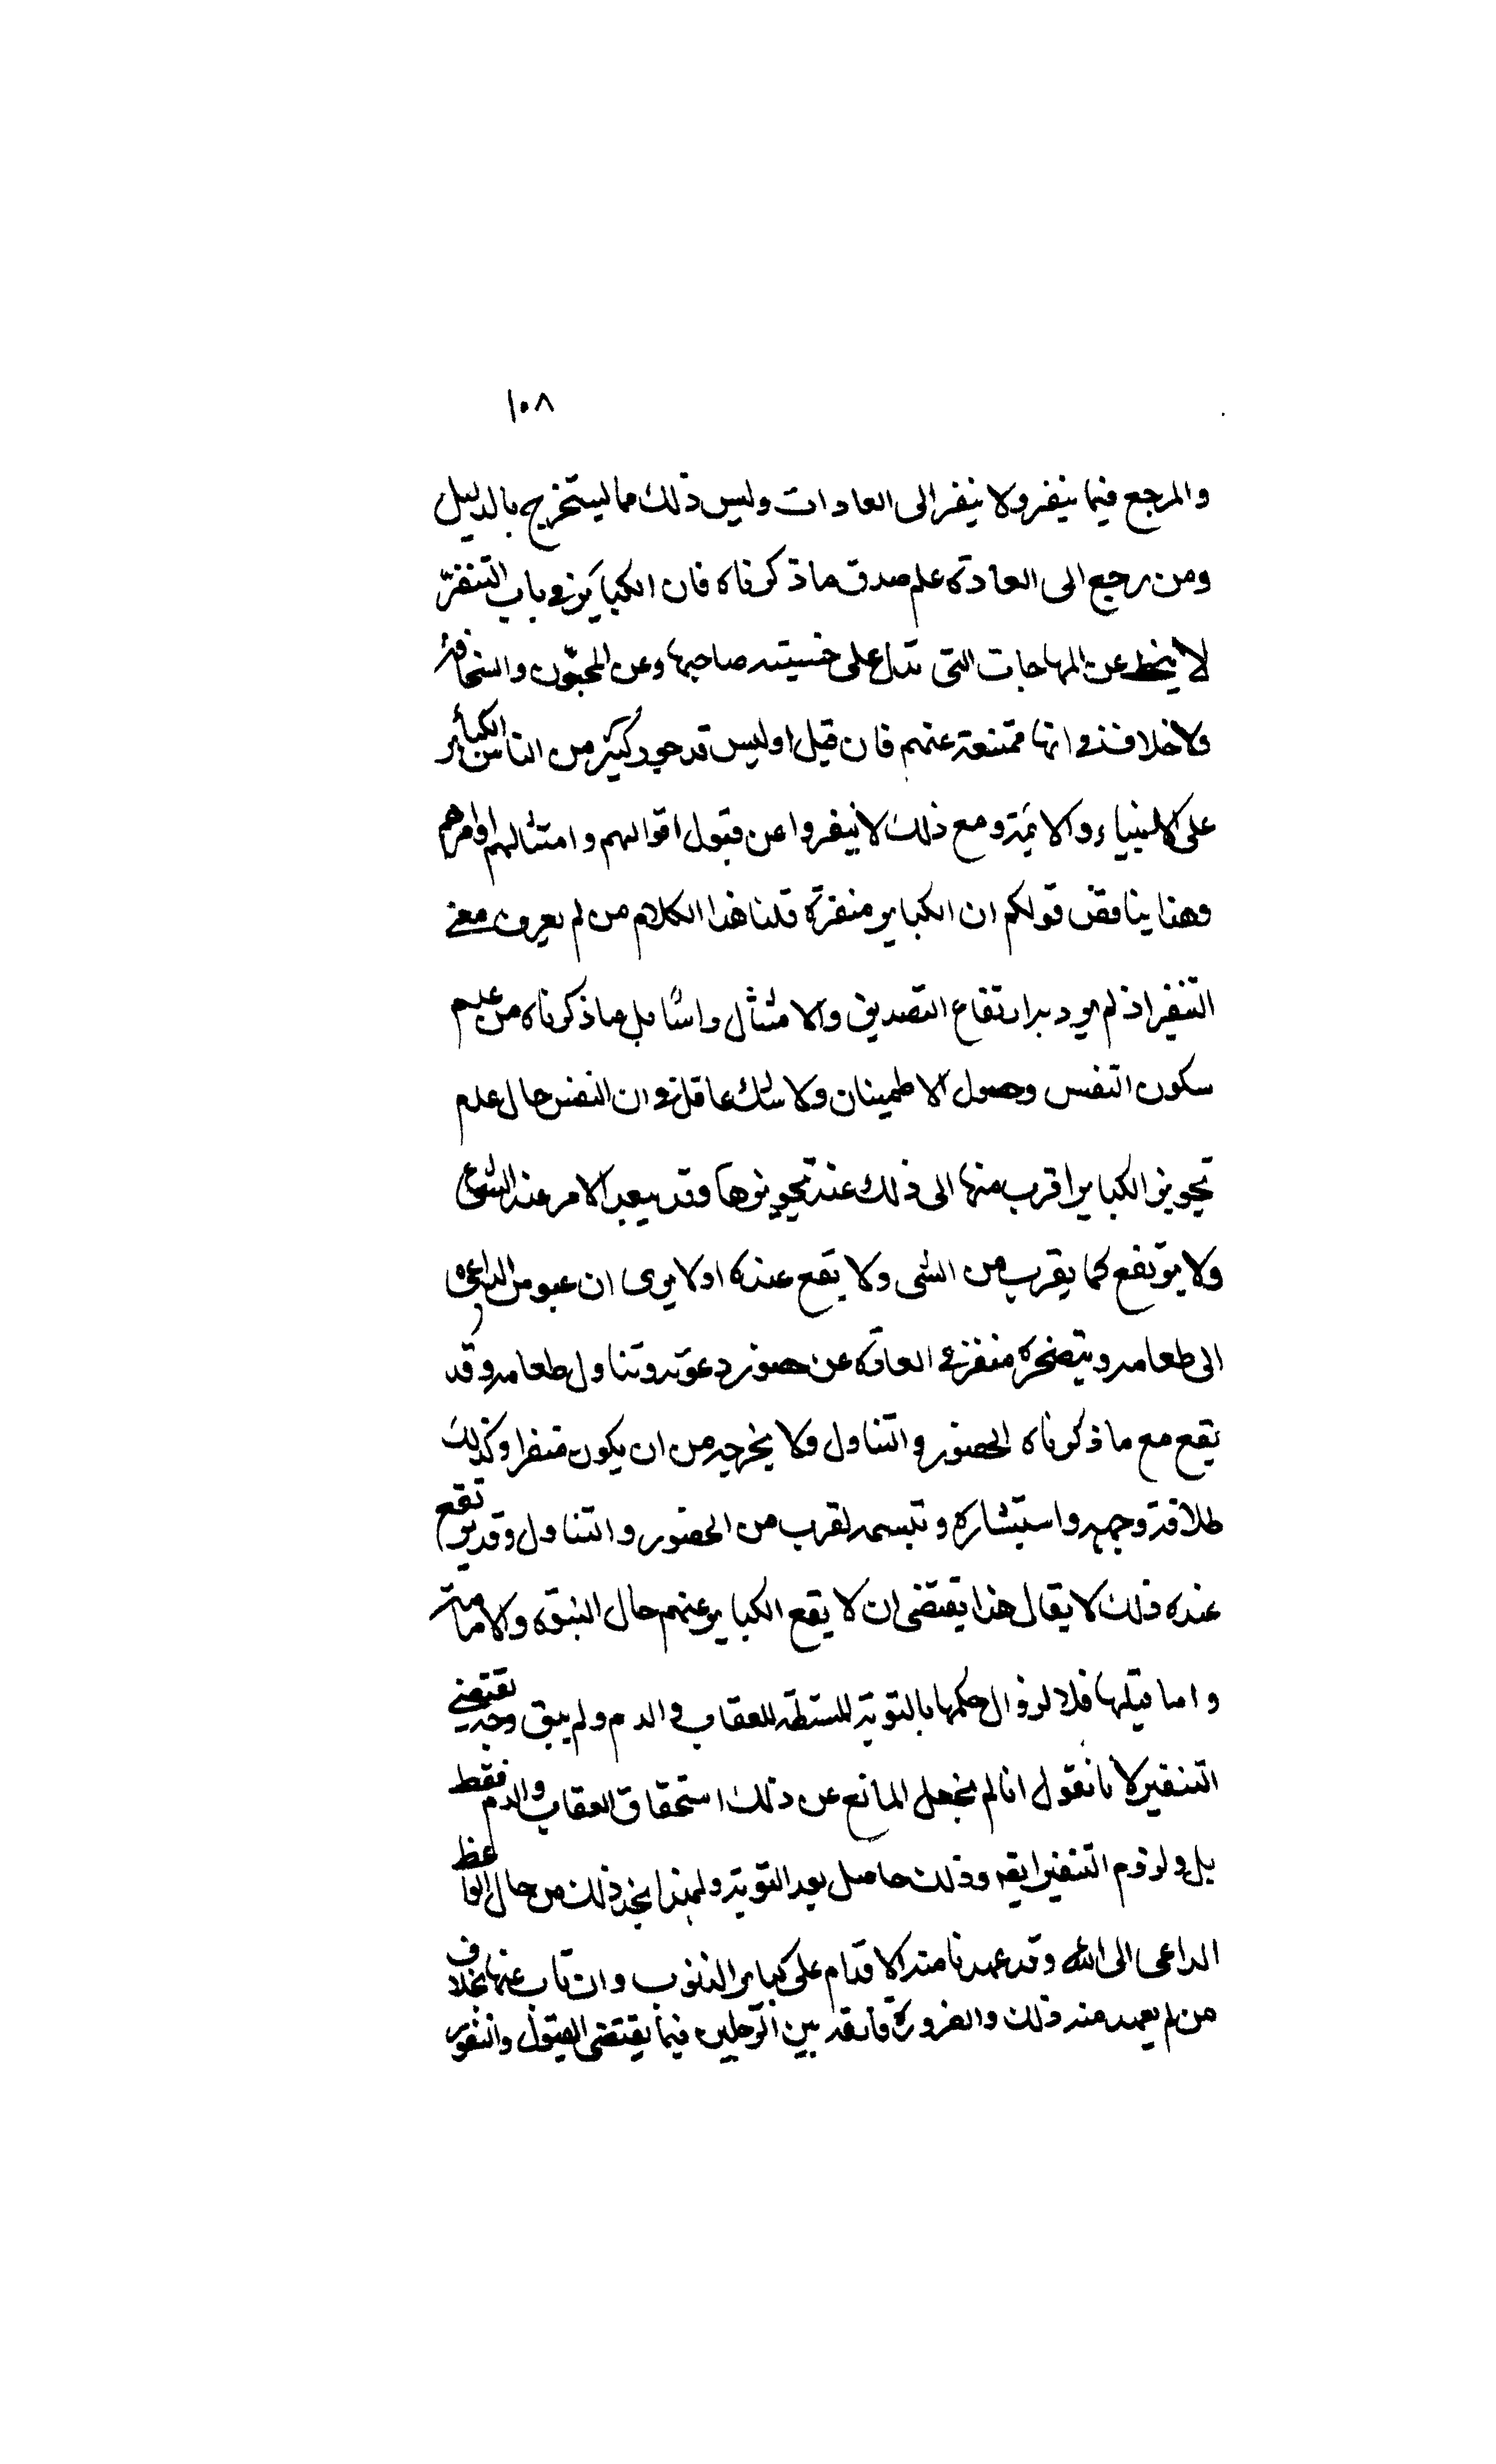 ١٠٨
والمرجع فيما ينفر ولا ينفر الى العادات وليس ذلك مما يستخرج بالدليل
ومن رجع الى العادة علم صدق ما ذكرناه فان الكبائر في باب التنفر
لا ينحط عن المباحات التي تدل على خسيته صاحبها وعن المجون والسخافة
ولا خلاف في انها ممتنعة عنهم فان قيل اوليس قد جوز كثير من الناس الكبائر
على الانبياء والائمة ومع ذلك لا ينفروا عن قبول اقوالهم وامتثالهم اوامرهم
وهذا يناقض قولكم ان الكباير منفرة قلنا هذا الكلام من لم يعرف معنى
التنفير اذ لم يرد به ارتفاع التصديق والامتثال راسا بل ما ذكرناه من عدم
سكون النفس وحصول الاطمينان ولا شك عاقل في ان النفس حال عدم
تجويز الكباير اقرب منها الى ذلك عند تجويزها وقد يبعد الامر عند الشيء
ولا يرتفع كما يقرب من الشي ولا يقع عنده اولا يرى ان عبوس الداعي
الى طعامه وتضجره منفر في العادة عن حضور دعوته وتناول طعامه وقد
يقع مع ما ذكرناه الحضور والتناول ولا يخرجه من ان يكون منفرا وكذلك
طلاقة وجهه واستبشاره وتبسمه يقرب من الحضور والتناول وقد يرتفع
عنده ذلك لا يقال هذا يقتضي ان لا يقع الكباير عنهم حال النبوة والامامة
واما قبلها فلا لزوال حكمها بالتوبة المسقطة للعقاب والذم ولم يبق وجه يقتضي
التنفير لا نا نقول انا لم نجعل المانع عن ذلك استحقاق العقاب والذم فقط
بل ولزوم التنفير ايضا وذلك حاصل بعد التوبة ولهذا نجد ذلك من حال الواعظ
الداعي الى الله وقد عهدنا منه الاقدام على كباير الذنوب وان تاب عنها بخلاف
من لم يعهد منه ذلك والضرورة فارقة بين الرجلين فيما يقتضي القبول والنفور